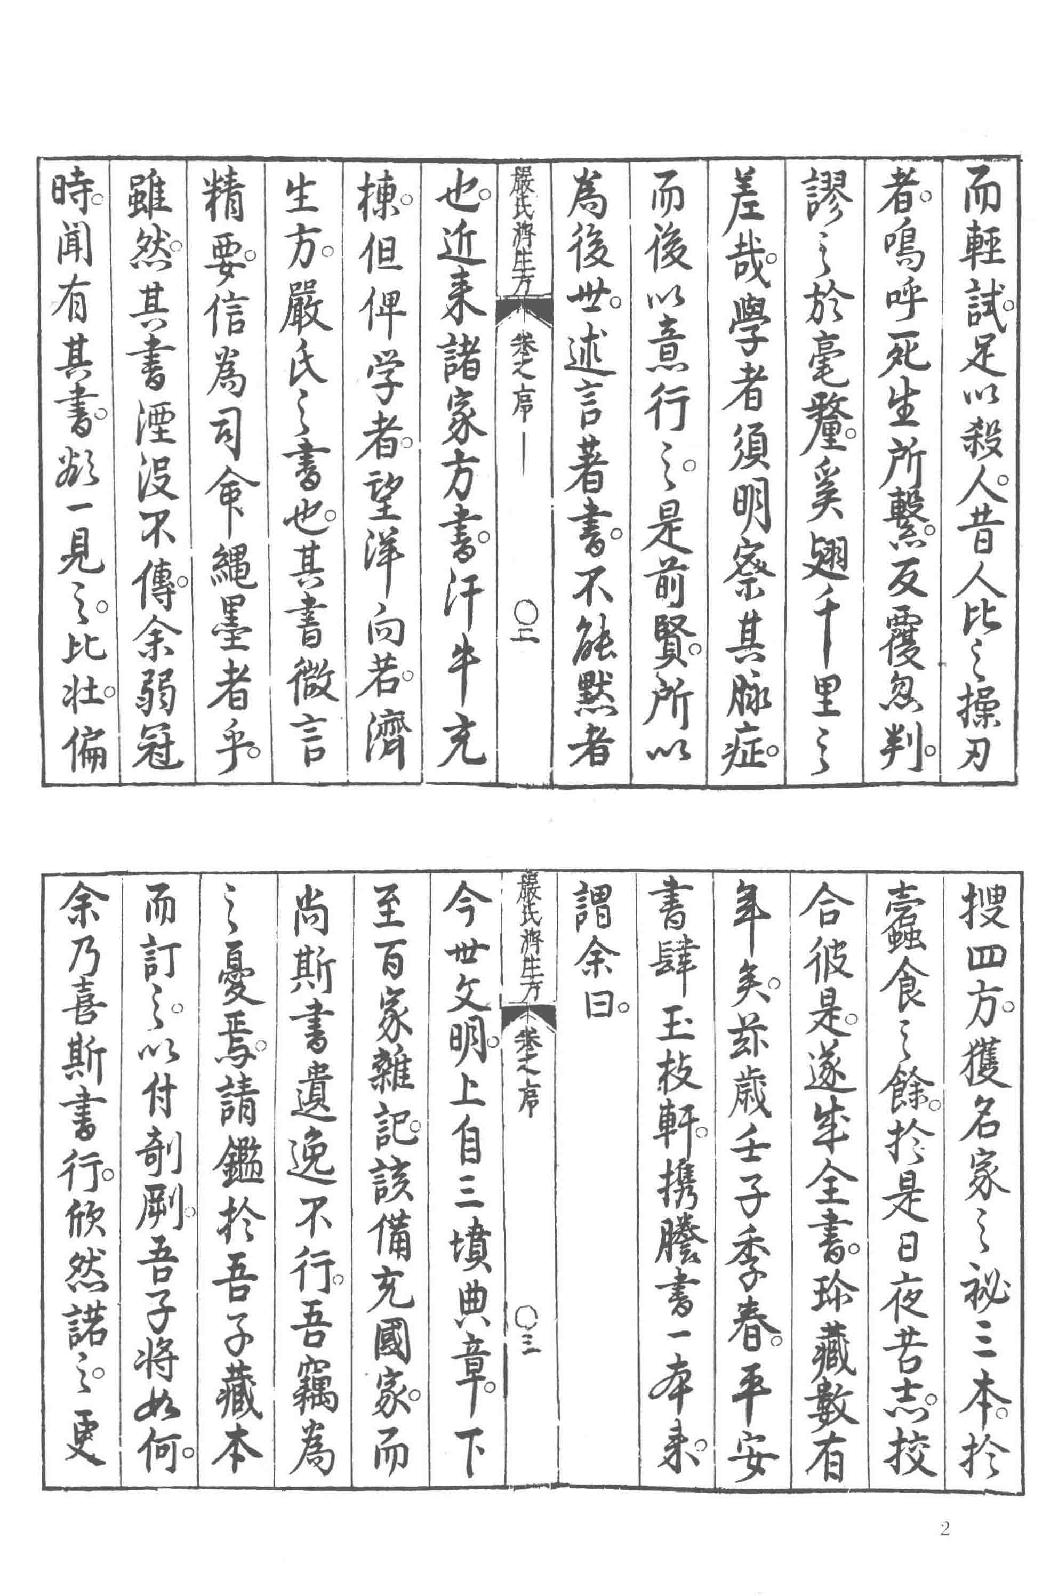 而輕試。足以殺人。昔人比之操刃
者。鳴呼死生所繫。反覆忽判。
謬之於毫釐。奚翅千里之
差哉。學者須明察其脉症。
而後以意行之。是前賢。所以
為後世。述言著書。不能默者
嚴氏濟生方 卷之序 〇二
也。近来諸家方書。汗牛充
棟。但俾学者。望洋向若。濟
生方。嚴氏之書也。其書微言
精要。信為司命繩墨者乎。
雖然。其書湮没不傳。余弱冠
時。闻有其書。欲一見之。比壮。偏
搜四方。獲名家之祕三本。於
蠹食之餘。於是日夜苦志。挍
合彼是。遂成全書。珎藏數有
年矣。茲歳壬子季春。平安
書肆玉枝軒。携謄書一本来。
謂余曰。
嚴氏濟生方 卷之序 〇三
今世文明。上自三墳典章。下
至百家雜記。該備充國家。而
尚斯書遺逸不行。吾竊為
之憂焉。請鑑於吾子藏本
而訂之。以付剞劂。吾子将如何。
余乃喜斯書行。欣然諾之。更
2